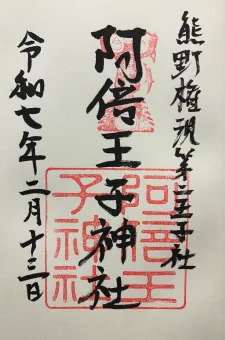 熊野権現第二王子社
阿倍王子神社
令和七年二月十三日
阿倍王
子神社